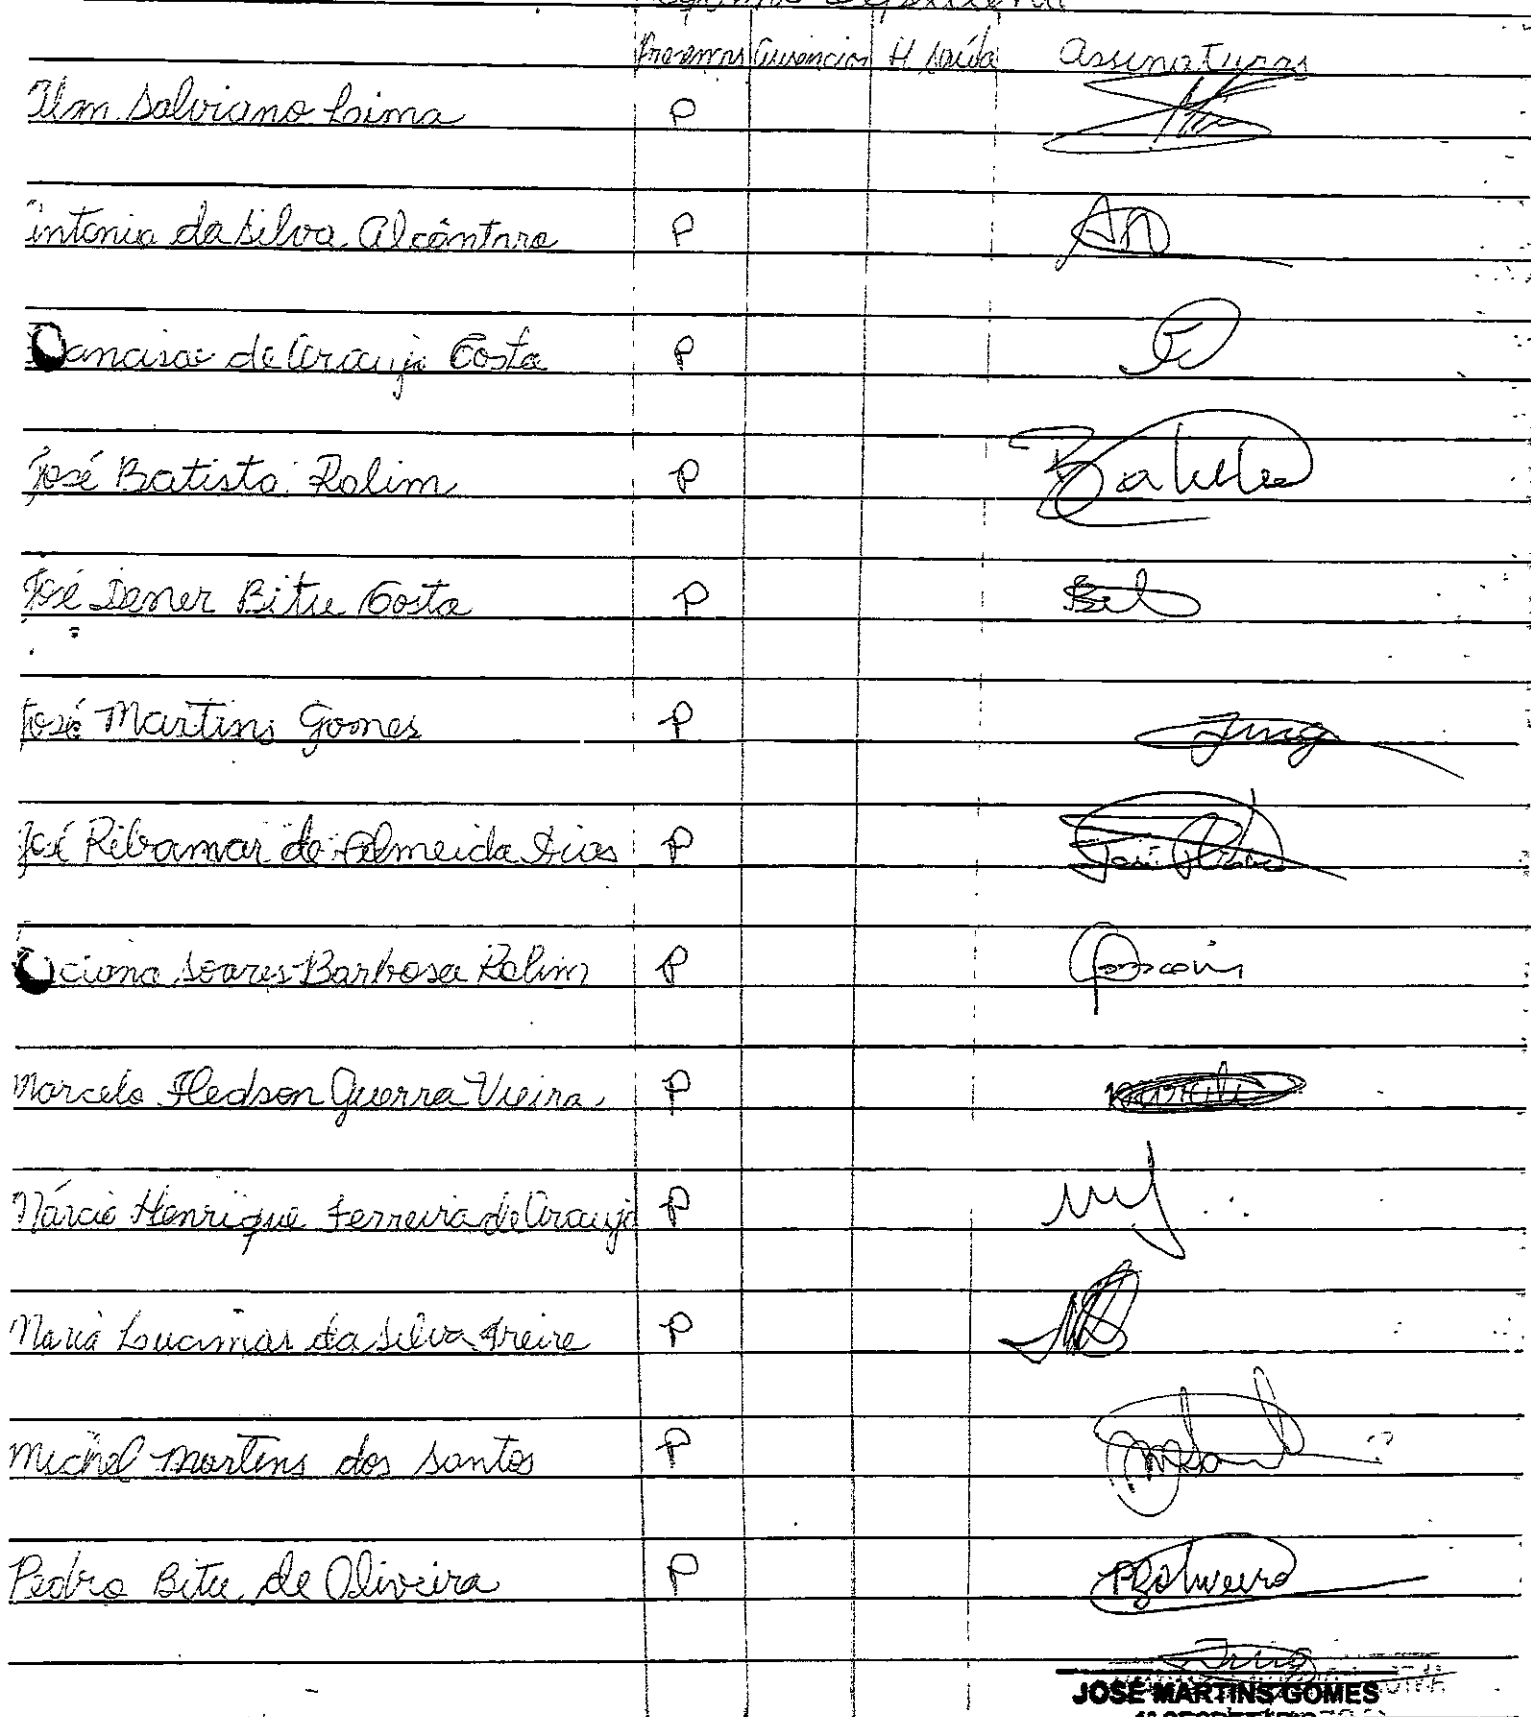 Presenças Ausências H. saída Assinaturas
Salviano Lima P
Antonia da Silva Alcântara P
Francisco de Araujo Costa P
José Batista Rolim P
José Dener Bitu Costa P
José Martins Gomes P
José Ribamar de Almeida Dias P
Luciana Soares Barbosa Rolim P
Marcelo Fledson Guerra Vieira P
Márcio Henrique Ferreira de Araujo P
Maria Lucimar da Silva Freire P
Michel Martins dos Santos P
Pedro Bitu de Oliveira P
JOSÉ MARTINS GOMES